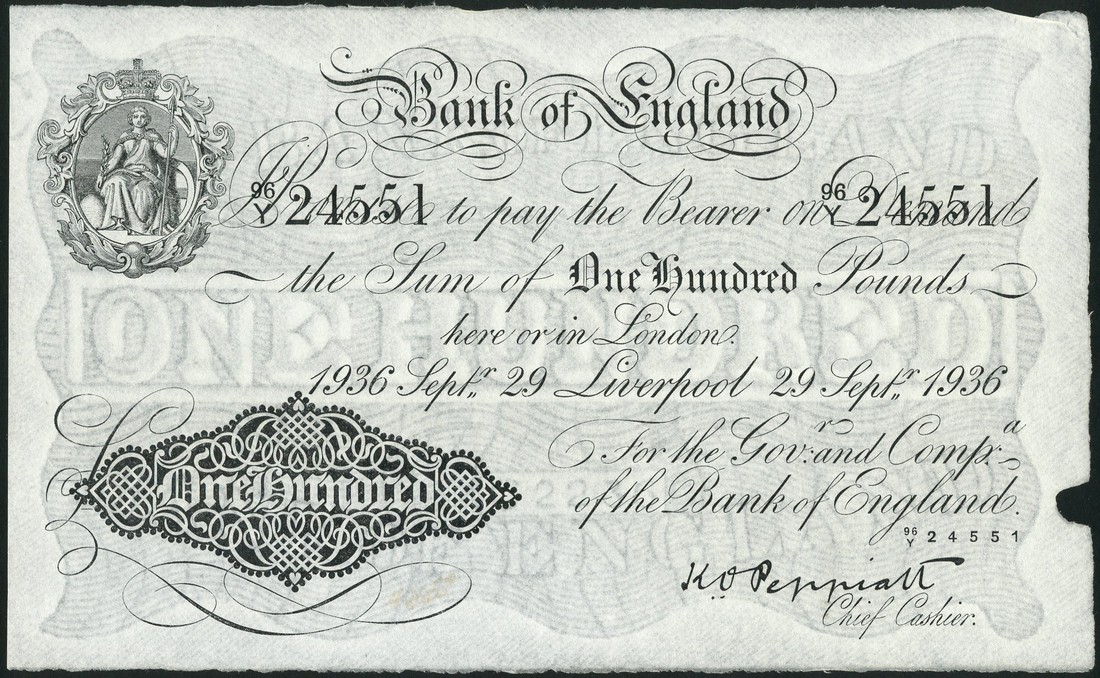 Bank of England
96/Y 24551 96/Y 24551
I Promise to pay the Bearer on Demand
the Sum of One Hundred Pounds
here or in London.
1936 Septr. 29 Liverpool 29 Septr. 1936
For the Govr: and Compa.
of the Bank of England.
£ One Hundred
96/Y 24551
K.O. Peppiatt
Chief Cashier.
ONE HUNDRED